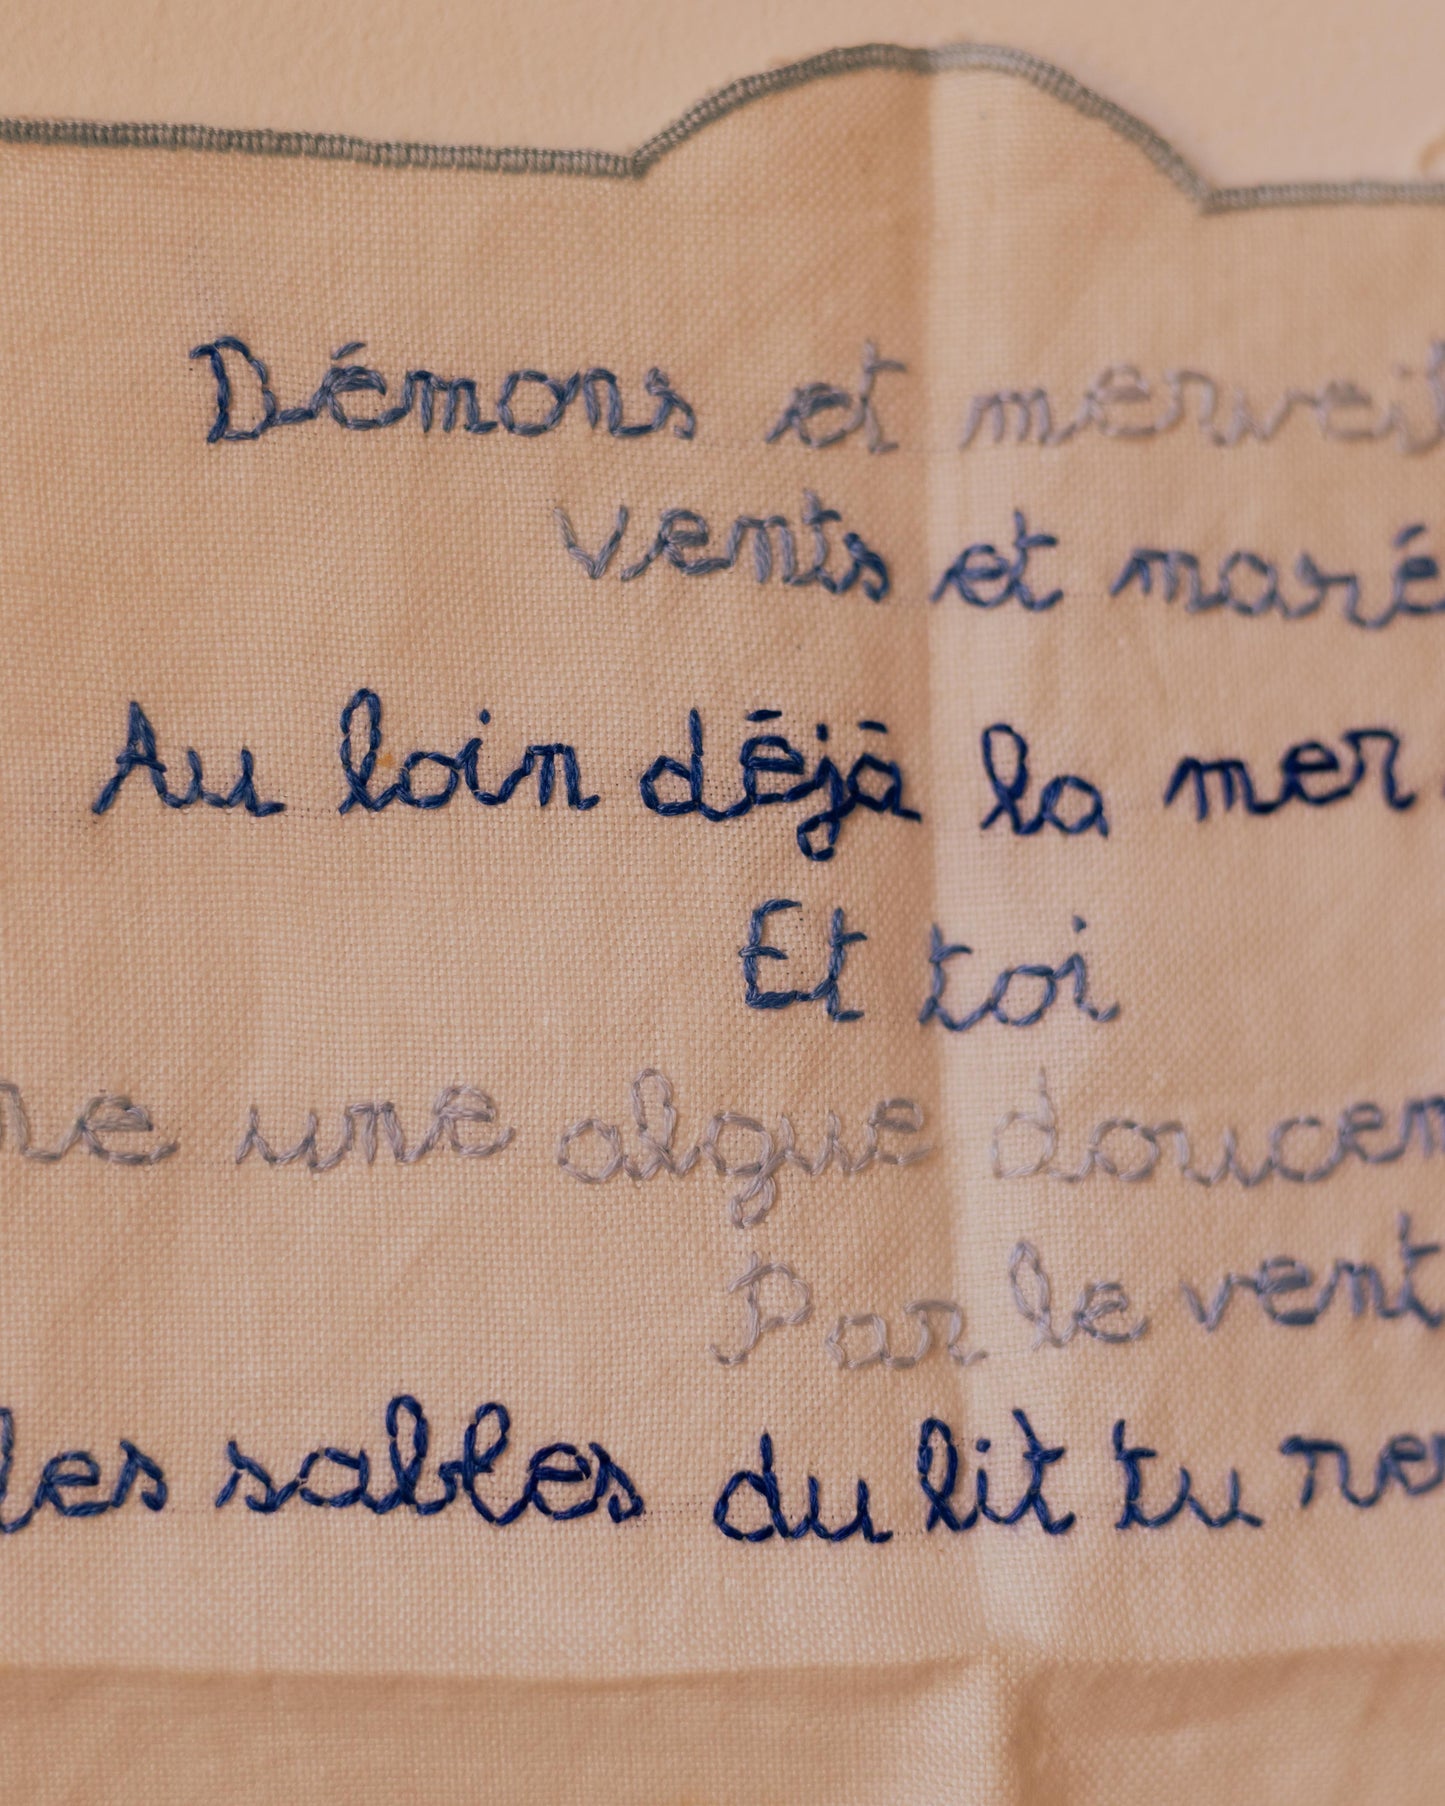 Démons et merveil
vents et maré
Au loin déjà la mer
Et toi
ne une algue doucem
Par le vent
les sables du lit tu rem